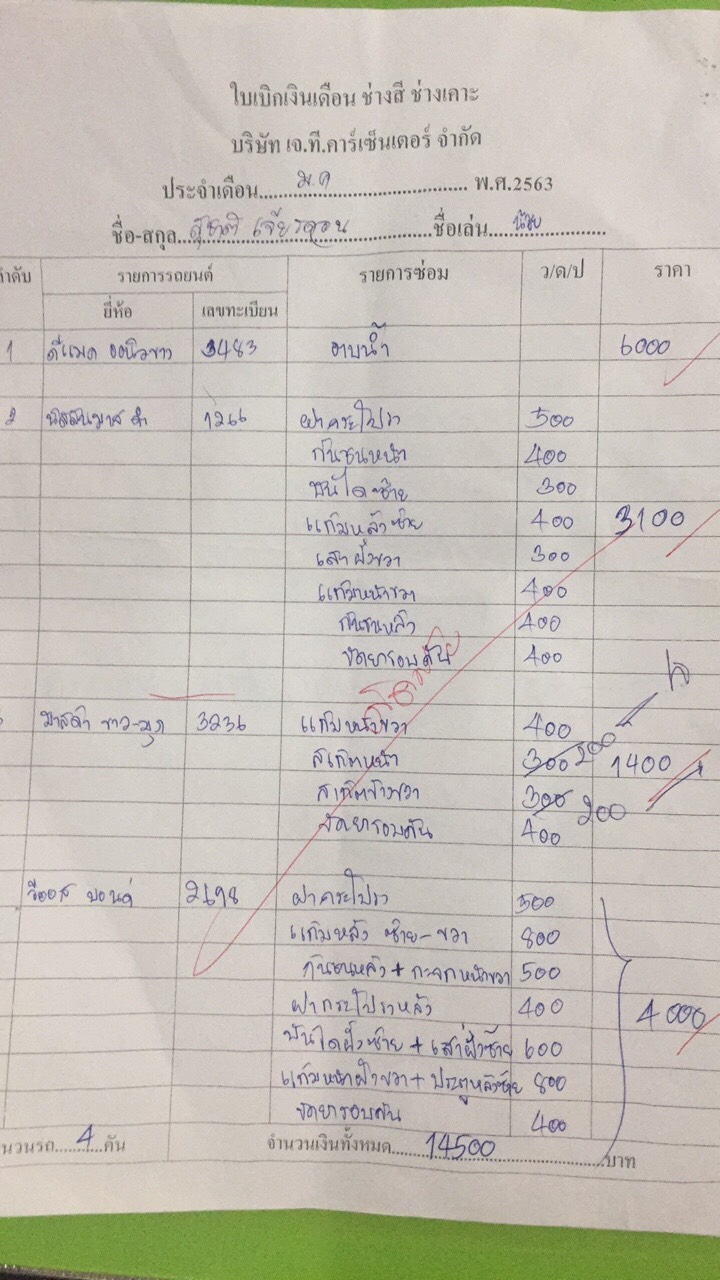 ใบเบิกเงินเดือน ช่างสี ช่างเคาะ
บริษัท เจ.ที.คาร์เซ็นเตอร์ จำกัด
ประจำเดือน.....ม.ค..... พ.ศ.2563
ชื่อ-สกุล..........ชื่อเล่น.....น้อย.....
ลำดับ รายการรถยนต์ รายการซ่อม ว/ด/ป ราคา
ยี่ห้อ เลขทะเบียน
1 ดีแมค 3483 อาบน้ำ 6000
2 1266 ฝากระโปรง 500
กันชนหน้า 400
บันไดซ้าย 300
แก้มหลังซ้าย 400 3100
เสาฝั่งขวา 300
แก้มหน้าขวา 400
กันชนหลัง 400
ขัดยารอบคัน 400
มาสด้า ขาว-มุก 3236 แก้มหน้าขวา 400
สเกิตหน้า 300 200 1400
สเกิตข้างขวา 300 200
ขัดยารอบคัน 400
วีออส บอนด์ 2698 ฝากระโปรง 500
แก้มหลัง ซ้าย-ขวา 800
กันชนหลัง + กระจกหน้าขวา 500
ฝากระโปรงหลัง 400 4000
บันไดฝั่งซ้าย + เสาฝั่งซ้าย 600
แก้มหน้าฝั่งขวา + ประตูหลังซ้าย 800
ขัดยารอบคัน 400
จำนวนรถ.....4.....คัน จำนวนเงินทั้งหมด.....14500.....บาท